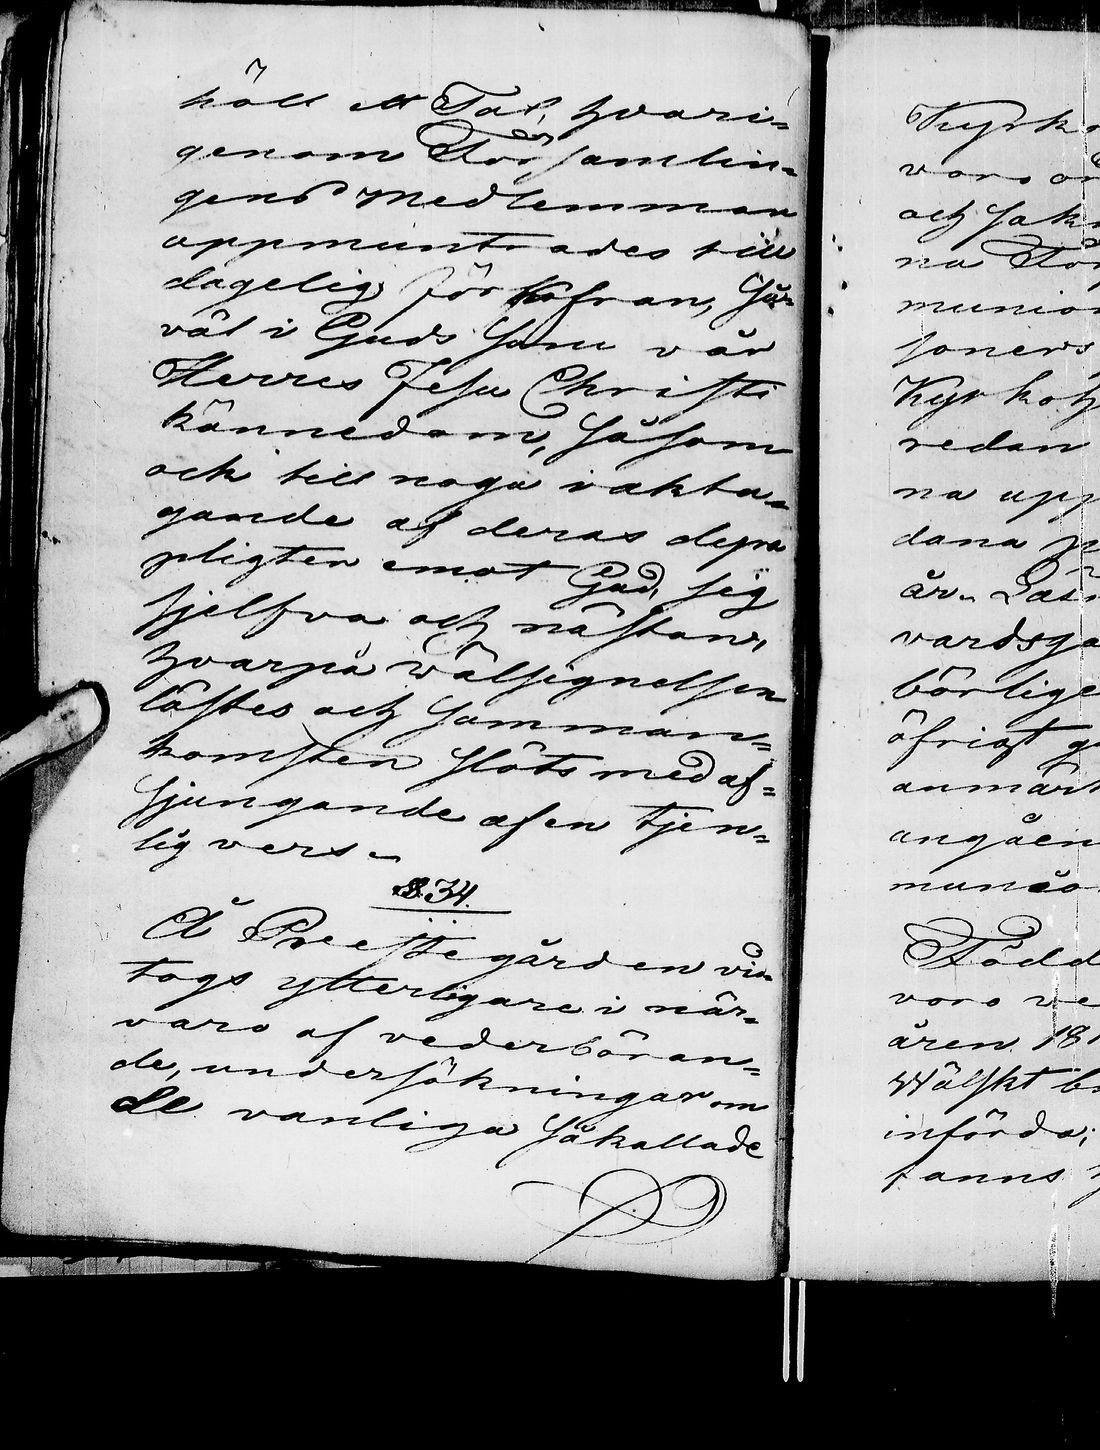 höll ett Tal, hvari=
genom Församlin=
gens Medlemmar
uppmuntrades till
dagelig förkofran, så=
väl i Guds Sons vår
Herres Jesu Christi
kännedom, såsom
ock till noga iakta=
gande af deras dyra
pligter emot Gud, sig
sjelfva och nästan,
hvarpå välsignelsen
lästes och samman=
komsten slöts med af=
sjungande af en tjen=
lig vers.
§. 34.
Å Prestegården vid=
togs ytterligare i när=
varo af vederböran=
de, undersökningar om
de vanliga såkallade
Kyrko
voro or
och sak
na För
munion
soners
Kyrkoh
redan
na upp
dana p
är.
vardsga
börlige
öfrigt g
anmärk
angåen
munio
Född
voro ve
åren 18
Wälskt b
införda;
fanns h